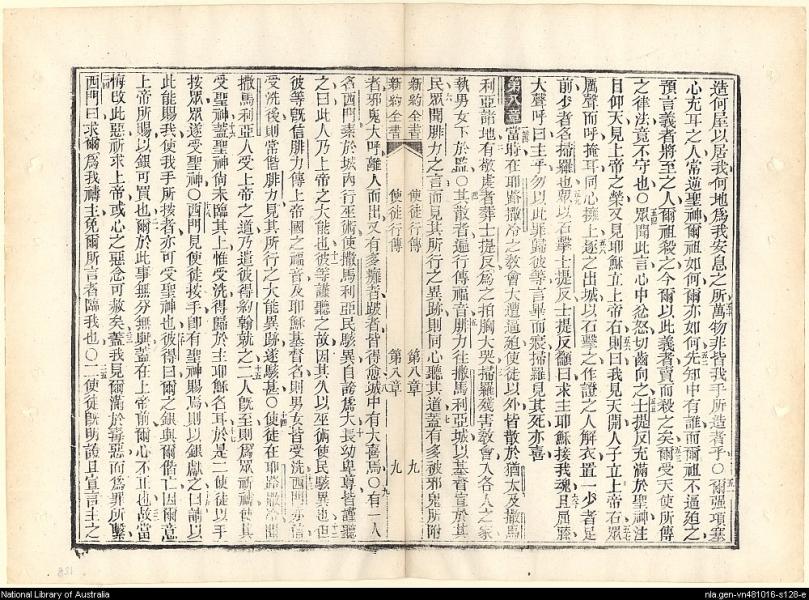 造何屋以居我何地爲我安息之所萬物非皆我手所造者乎○爾强項塞
心充耳之人常逆聖神爾祖如何爾亦如何先知中有誰而爾祖不逼廹之
預言義者將至之人爾祖殺之今爾以此義者賣而殺之矣爾受天使所傳
之律法竟不守也○眾聞此言心中忿怒切齒向之士提反充滿於聖神注
目仰天見上帝之榮又見耶穌立上帝右則曰我見天開人子立上帝右眾
厲聲而呼掩耳同心擁上逐之出城以石擊之作證之人解衣置一少者足
前少者名掃羅也眾以石擊士提反士提反籲曰求主耶穌接我魂且屈膝
大聲呼曰主乎勿以此罪歸彼等言畢而寢掃羅見其死亦喜
第八章 當時在耶路撒冷之敎會大遭逼廹使徒以外皆散於猶太及撒馬
利亞諸地有敬虔者葬士提反爲之拍胸大哭掃羅殘害敎會入各人之家
執男女下於監○其散者遍行傳福音腓力往撒馬利亞城以基督宣於其
民眾聞腓力之言而見其所行之異跡則同心聽其道蓋有多被邪鬼所附
新約全書 使徒行傳 第八章 九
新約全書 使徒行傳 第八章 九
者邪鬼大呼離人而出又有多癱者跛者皆得愈城中有大喜焉○有一人
名西門素於城內行巫術使撒馬利亞民駭異自誇爲大長幼卑尊皆謹聽
之曰此人乃上帝之大能也彼等謹聽之故因其久以巫術使民駭異也但
彼等旣信腓力傳上帝國之福音及耶穌基督名則男女皆受洗西門亦信
受洗後則常偕腓力見其所行之大能異跡遂駭甚○使徒在耶路撒冷聞
撒馬利亞人受上帝之道乃遣彼得約翰就之二人旣至則爲眾祈禱使其
受聖神蓋聖神尙未臨其上惟受洗得歸於主耶穌名耳於是二使徒以手
按眾眾遂受聖神○西門見使徒按手卽有聖神賜焉則以銀獻之曰請以
此能賜我使我手所按者亦可受聖神也彼得曰爾之銀與爾偕亡因爾意
上帝所賜以銀可買也爾於此事無分無與蓋在上帝前爾心不正也故當
悔改此惡祈求上帝或心之惡念可赦矣蓋我見爾滿於毒惡而爲罪所繫
西門曰求爾爲我禱主免爾所言者臨我也○二使徒旣明證且宣言主之
National Library of Australia
nla.gen-vn481016-s128-e